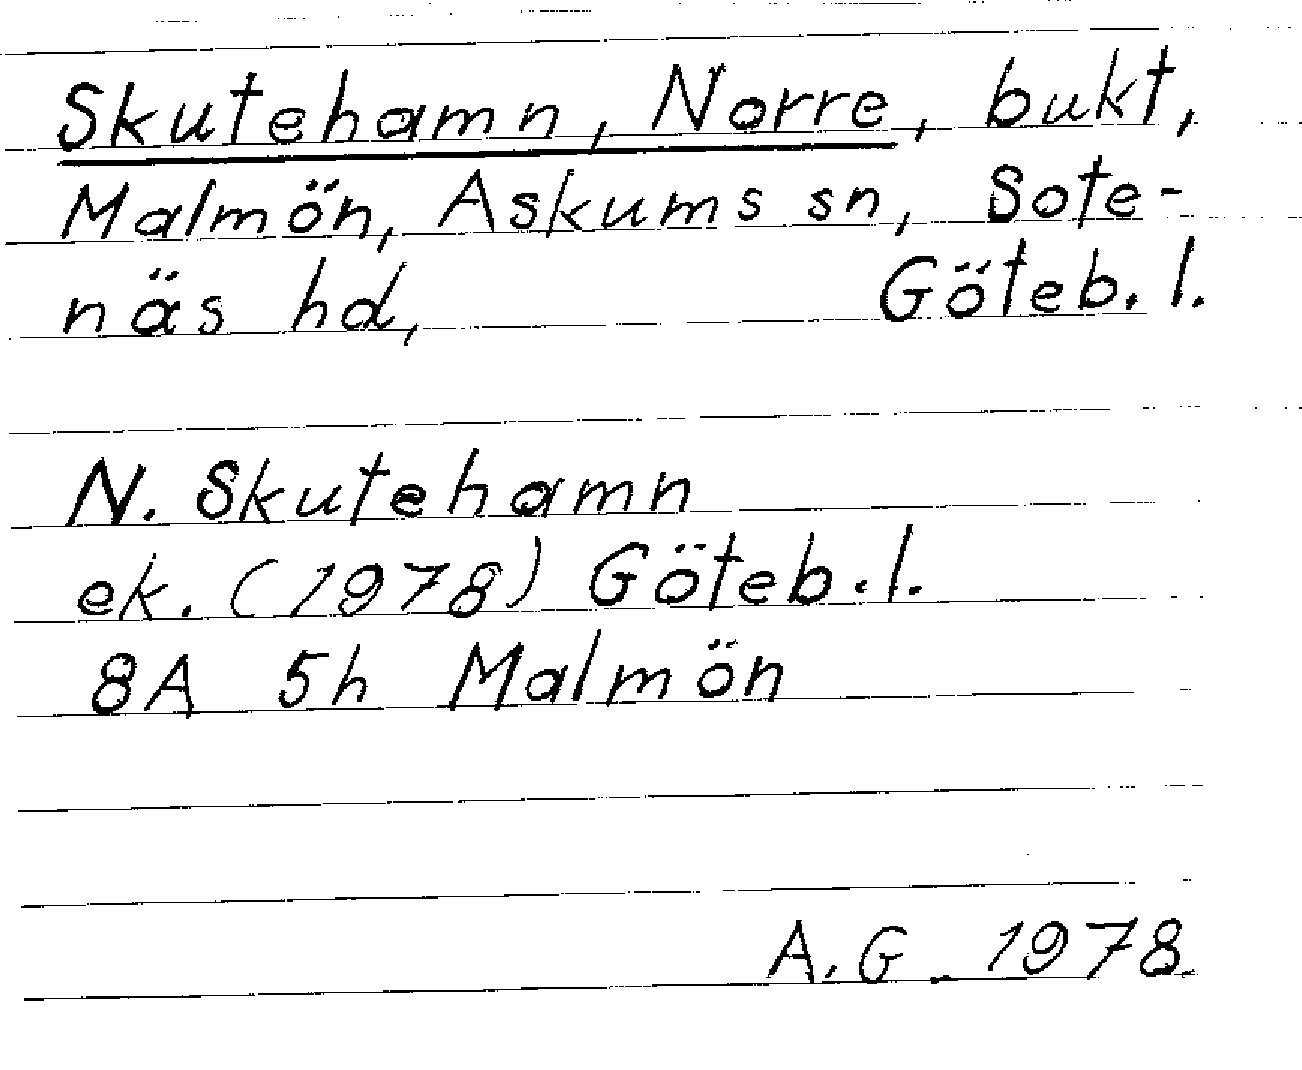 Skutehamn, Norre, bukt,
Malmön, Askums sn, Sote-
näs hd, Göteb. l.
N. Skutehamn
ek. (1978) Göteb. l.
8A 5h Malmön
A. G. 1978.